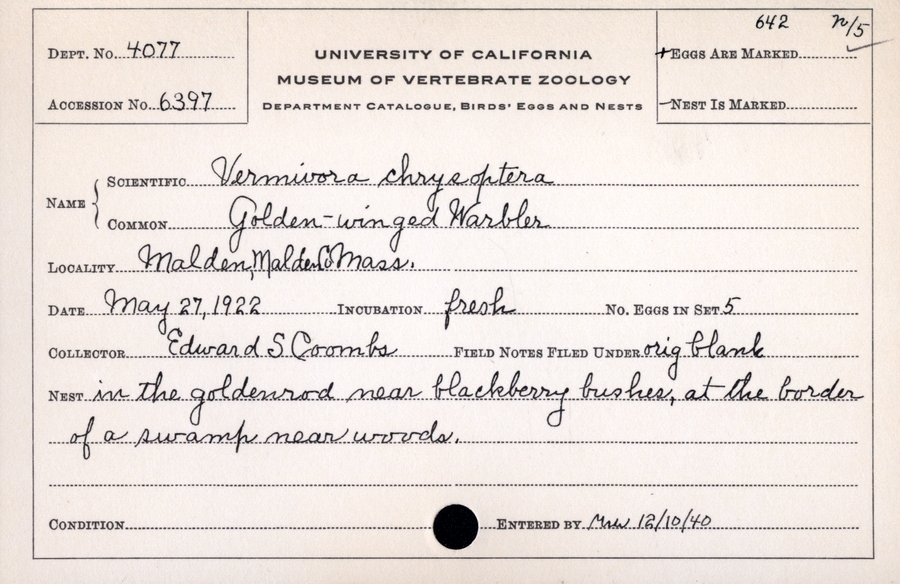 642 n/5
DEPT. NO. 4077
UNIVERSITY OF CALIFORNIA
+EGGS ARE MARKED
MUSEUM OF VERTEBRATE ZOOLOGY
ACCESSION NO. 6397
DEPARTMENT CATALOGUE, BIRDS' EGGS AND NESTS
–NEST IS MARKED
NAME { SCIENTIFIC Vermivora chrysoptera
COMMON Golden-winged Warbler
LOCALITY Malden, Malden Co Mass.
DATE May 27, 1922 INCUBATION fresh NO. EGGS IN SET 5
COLLECTOR Edward S Coombs FIELD NOTES FILED UNDER orig blank
NEST in the goldenrod near blackberry bushes, at the border
of a swamp near woods.
CONDITION ENTERED BY 12/10/40